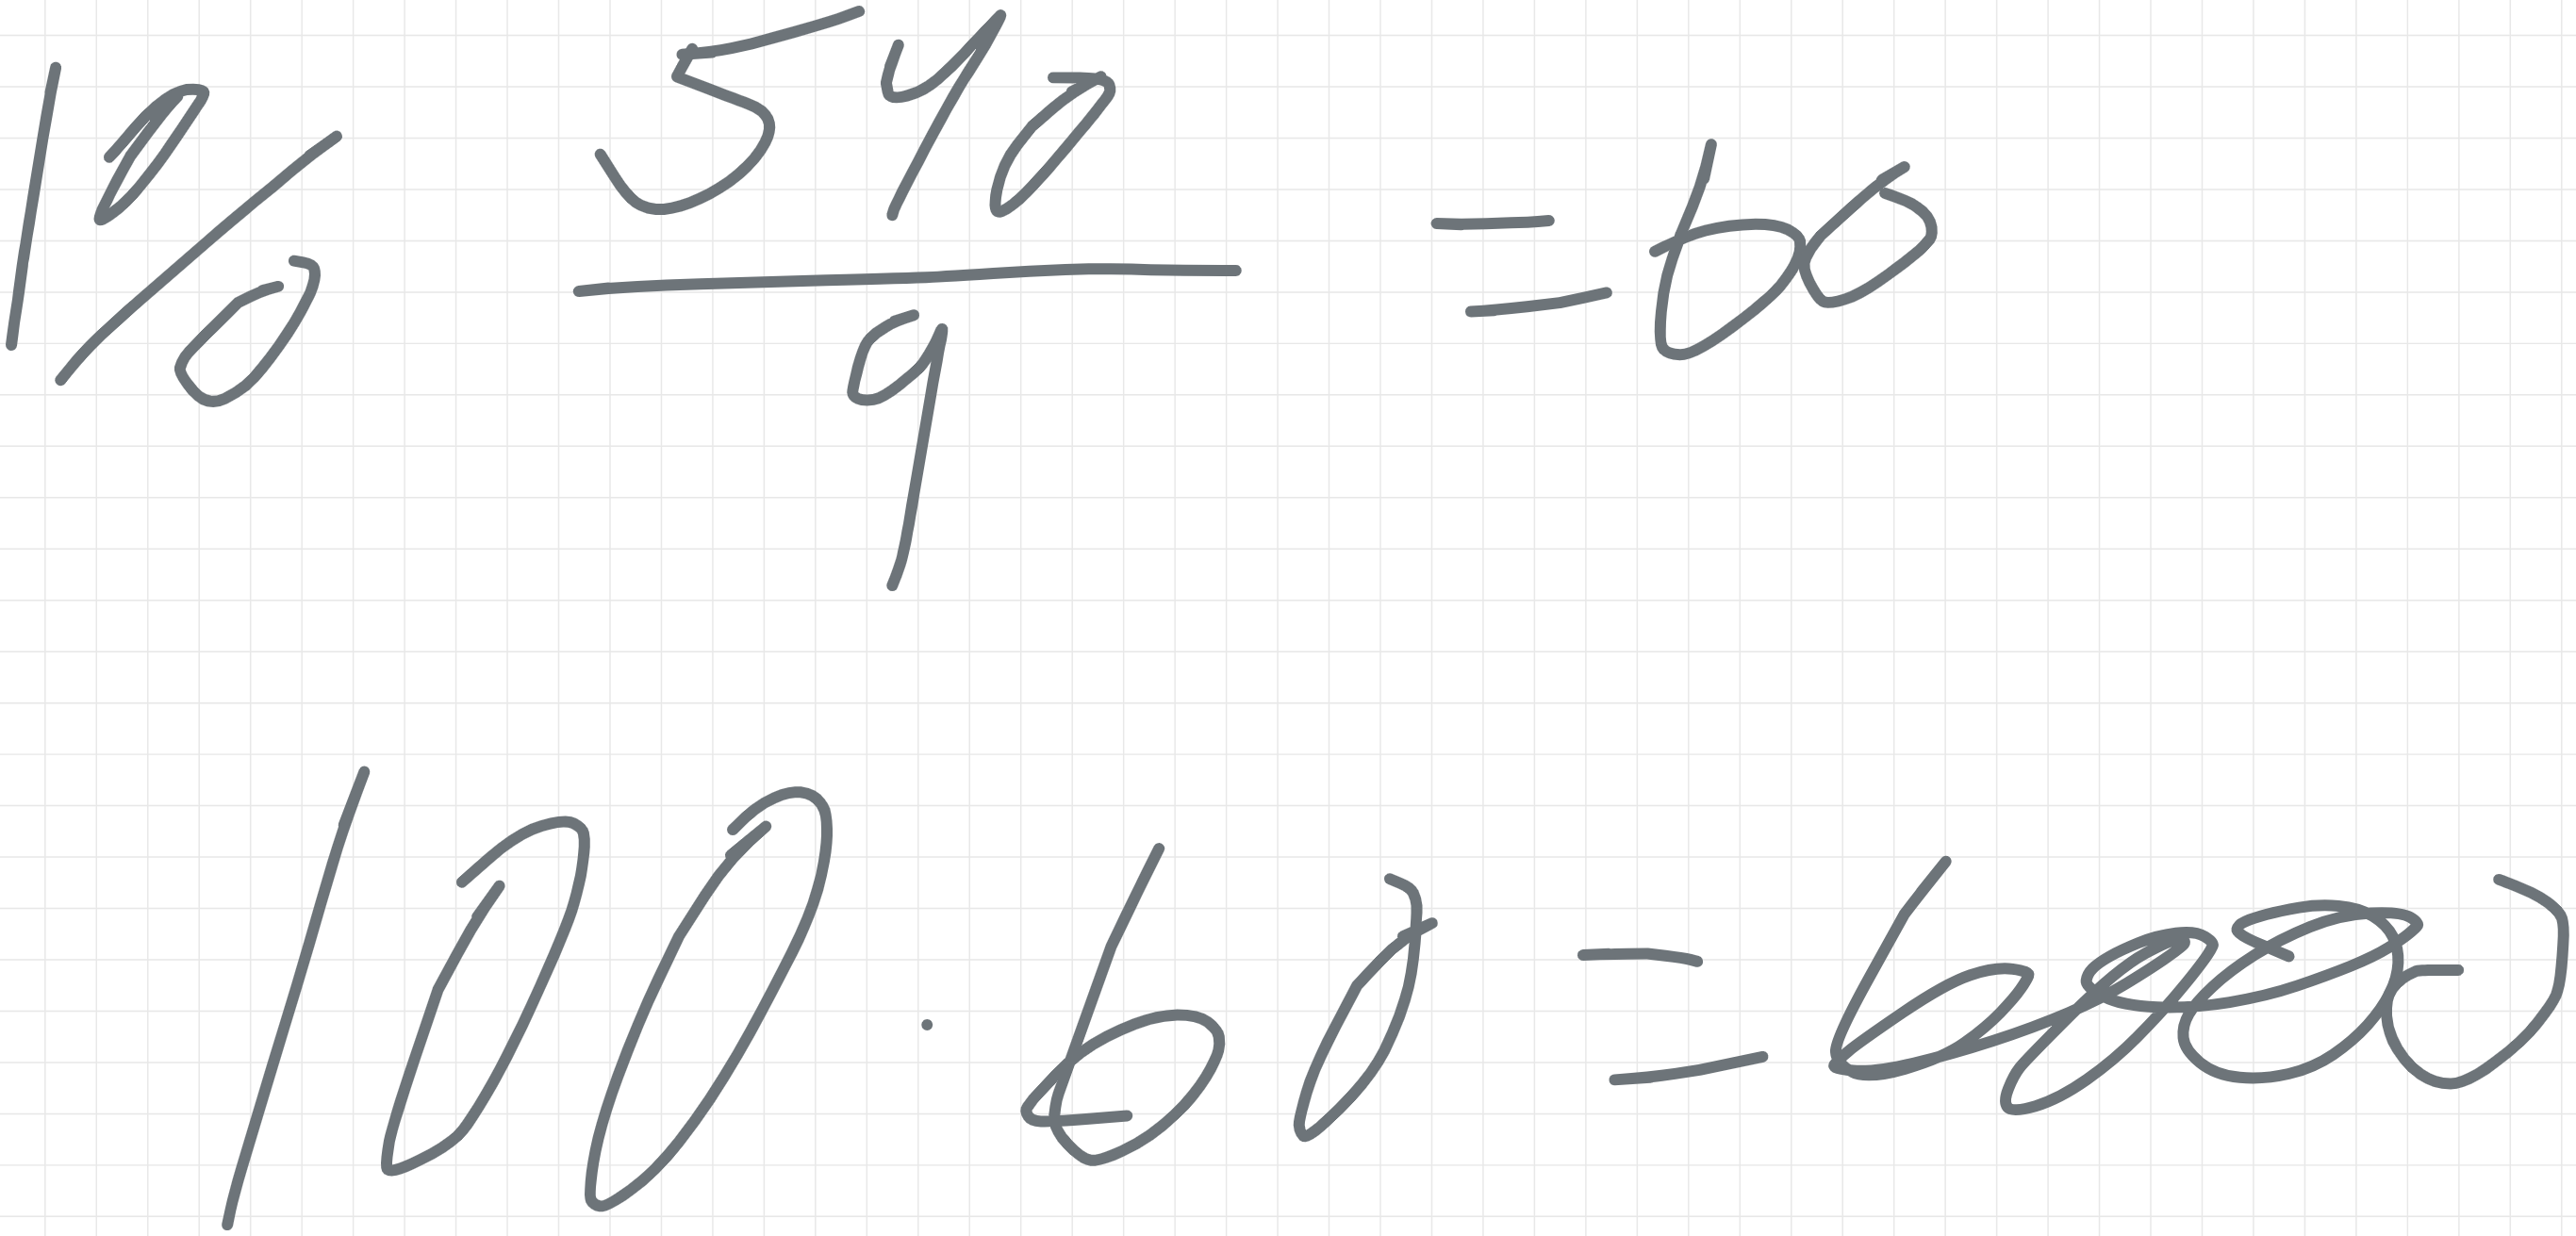 1% 540/9 = 60
100 · 60 = 6000